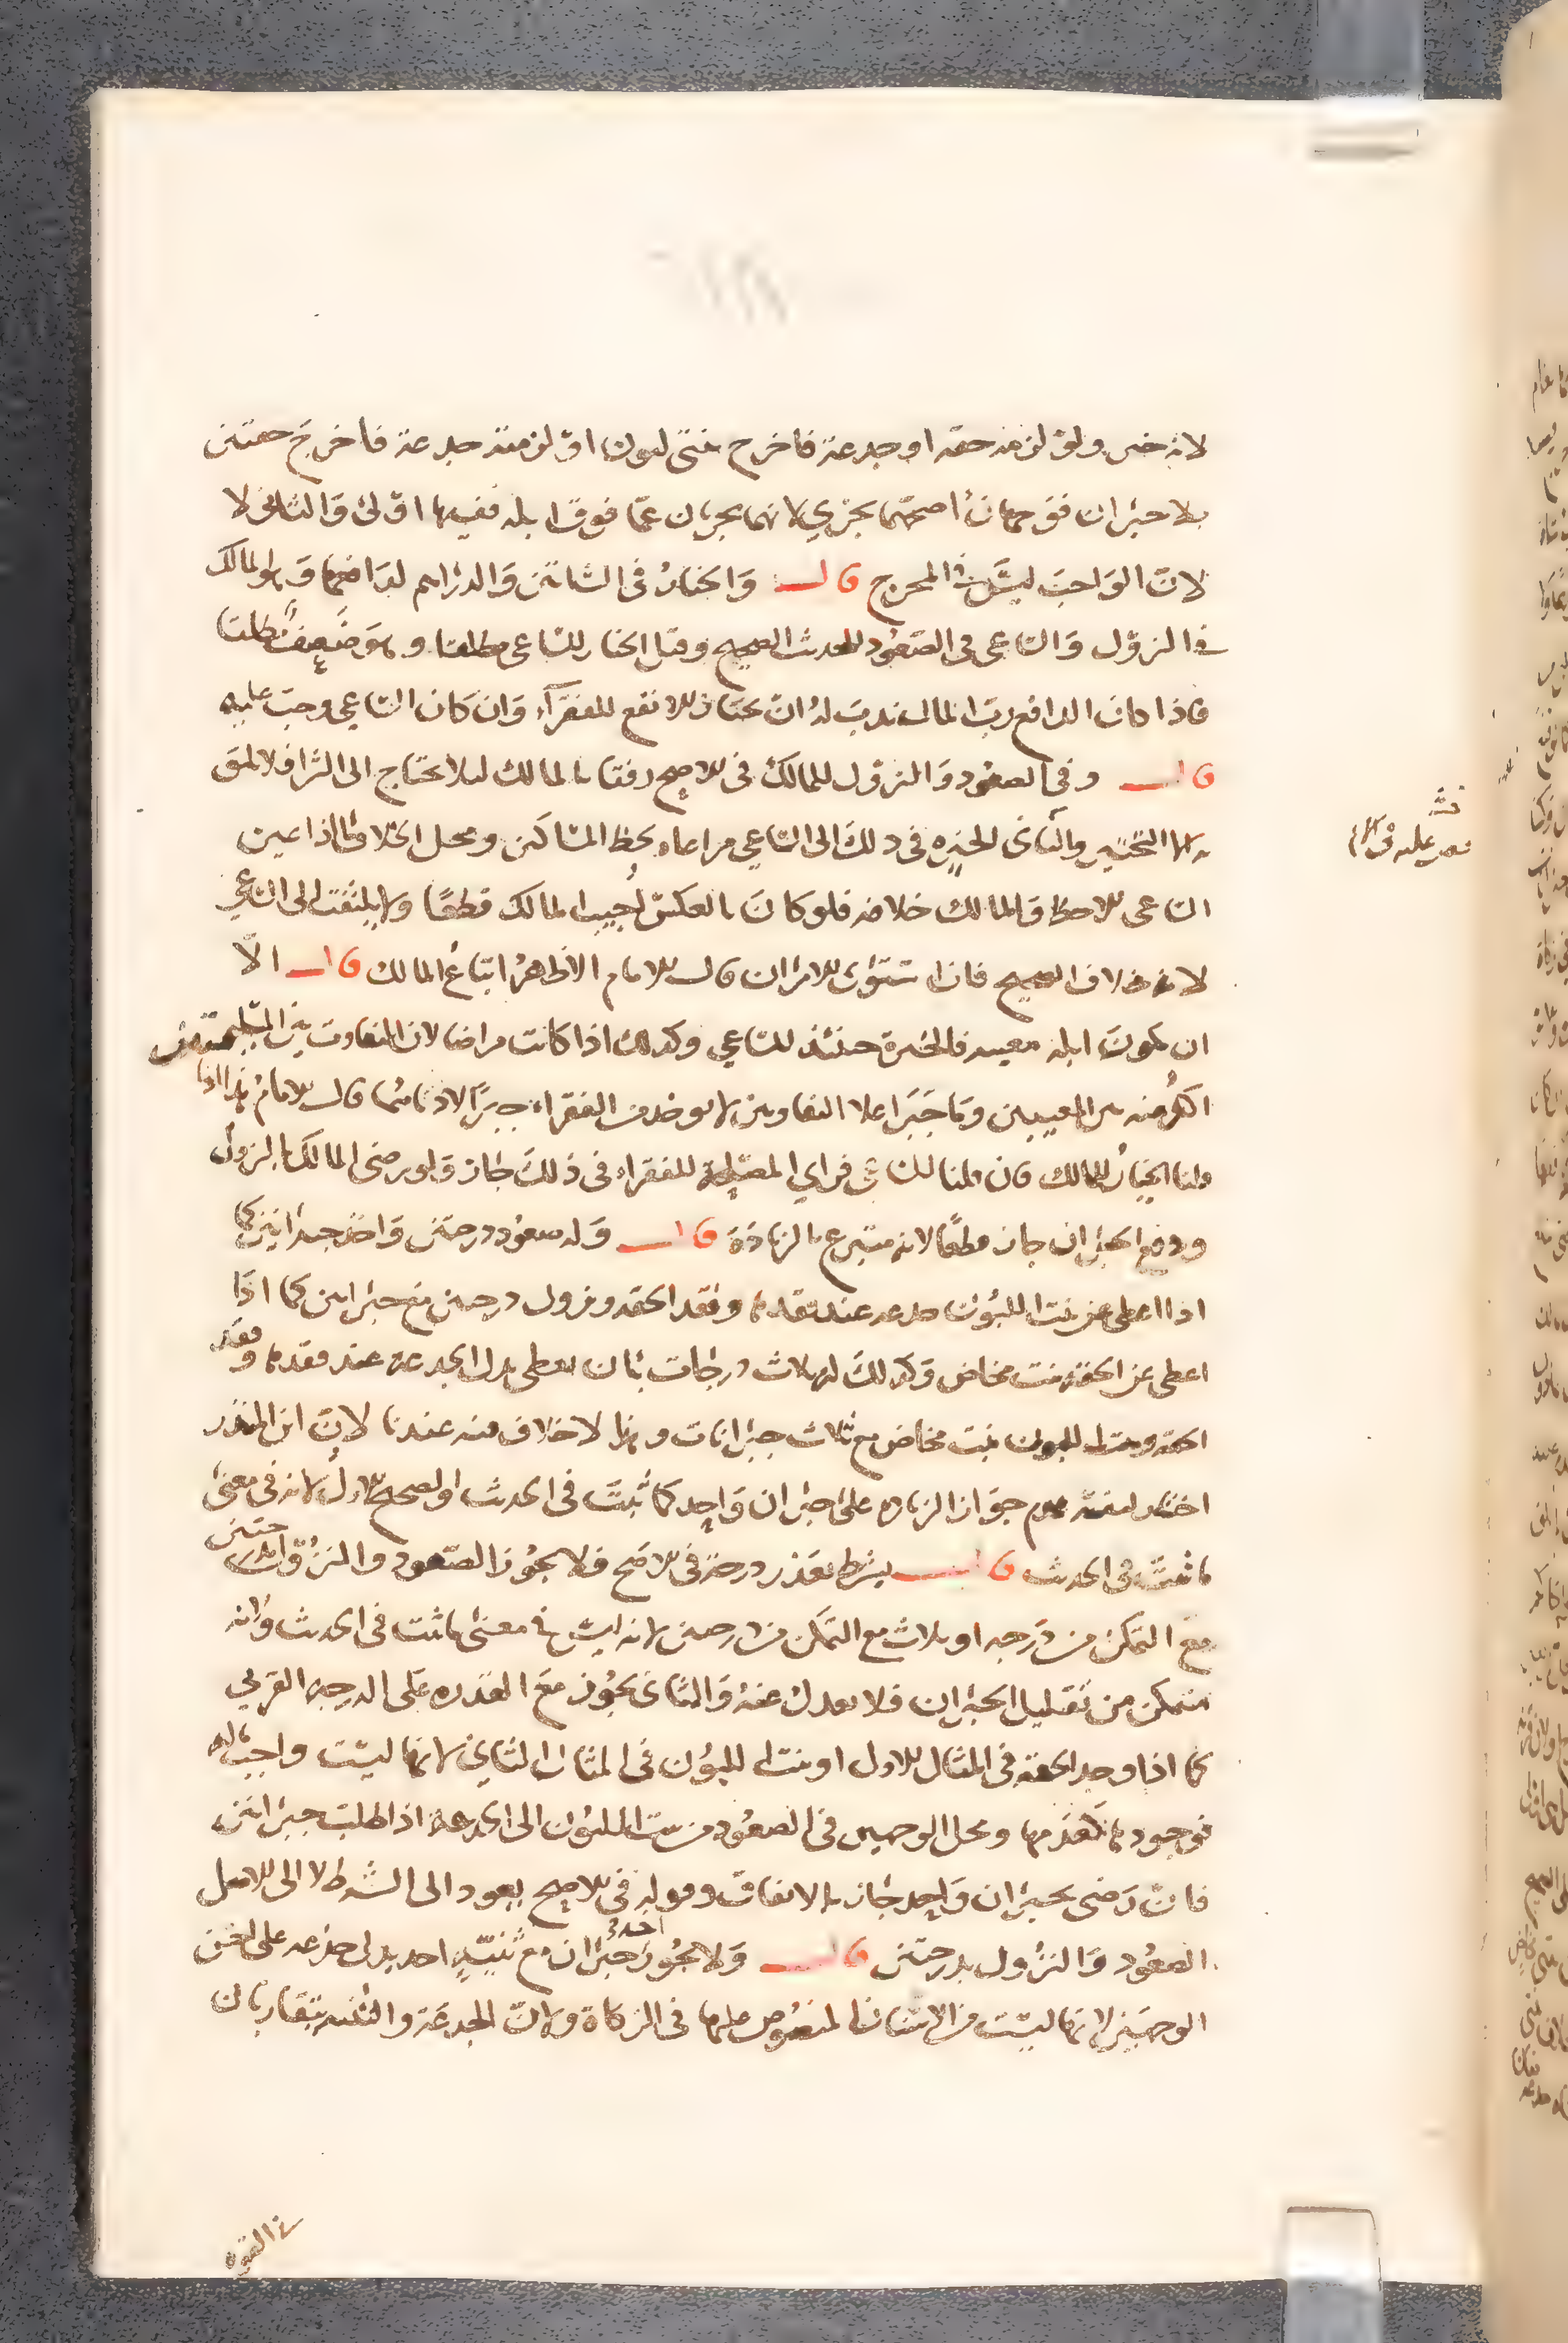 لانه خير ولو لزمته حقه او جدعة فاخرج بنتى لبون او لزمته جدعة فاخرج حقتين
بلا جبران فوجهان اصحهما يجزى لانهما يجزيان عمّا فوق ابله ففيها اولى والثانى لا
لان الواجب ليس فى المخرج قال والخيار فى الشاتين والدراهم لدافعها وهو المالك
فى النزول والساعى فى الصعود للحدىث الصحيح وقيل الخيار للساعى مطلقا وهو ضعيف
فاذا كان الدافع رب المال ندب له ان يختار الانفع للفقراء وان كان الساعى وجب عليه
قال وفى الصعود والنزول للمالك فى الاصح رفقا بالمالك ليلا يحتاج الى الشرا فلا يليق
به التخيير والثانى الخيره فى ذلك الى الساعى مراعاه لحظ المساكين ومحل الخلاف اذا عين
الساعى الاحظ والمالك خلافه فلو كان بالعكس اجيب المالك قطعًا ولا يلتفت الى الساعى
لانه خلاف الصحيح فان استوى الامران قال الامام الاظهر اتباع المالك قال الا
ان يكون ابله معيبه فالخيرة حينئذ للساعى وكذلك اذا كانت مراضا لان التفاوت بين السليمتين
اكثر منه بين المعيبين وما جبر اعلا التفاوتين لا يوخذ من الفقراء جبرًا لادناهما قال الامام هذا اذا
قلنا الخيار للمالك فان قلنا للساعى فراى المصلحة للفقراء فى ذلك جاز ولو رضى المالك بالنزول
ودفع الجبران جاز قطعًا لانه متبرع بالزيادة قال وله صعود درجتين واخذ جبرانين كما
اذا اعطى عن بنت اللبون جدعه عند فقدها وفقد الحقه ونزول درجتين مع جبرانين كما اذا
اعطى عن الحقه بنت مخاض وكذلك له ثلاث درجات بان يعطى بدل الجدعة عند فقدها وفقد
الحقه وبنت اللبون بنت مخاض مع ثلاث جبرانات وهذا لا خلاف فيه عندنا لان ابن المنذر
اختار لنفسه عدم جواز الزياده على جبران واحد كما ثبت فى الحديث والصحيح الاول لانه فى معنى
ما ثبت فى الحديث قال بشرط تعذر درجة فى الاصح فلا يجوز الصعود والنزول درجتين
مع التمكن من درجه او ثلاث مع التمكن من درجتين لانه ليس فى معنى ما ثبت فى الحديث ولانه
متمكن من تقليل الجبران فلا يعدل عنه والثانى يجوز مع القدره على الدرجه القربى
كما اذا وجد الحقه فى المثال الاول او بنت اللبون فى المثال الثانى لانها ليست واجب ماله
فوجودها كعدمها ومحل الوجهين فى الصعود من بنت اللبون الى الجدعة اذا طلب جبرانين
فان رضى بجبران واحد جاز بالاتفاق وقوله فى الاصح يعود الى الشرط لا الى الاصل
الصعود والنزول بدرجتين قال ولا يجوز اخذ جبران مع ثنيّةٍ احد بدل جذعه على احسن
الوجهين لانها ليست من الاسنان المنصوص عليها فى الزكاة ولان الجدعة والثنيه يتقاربان
فى القوه